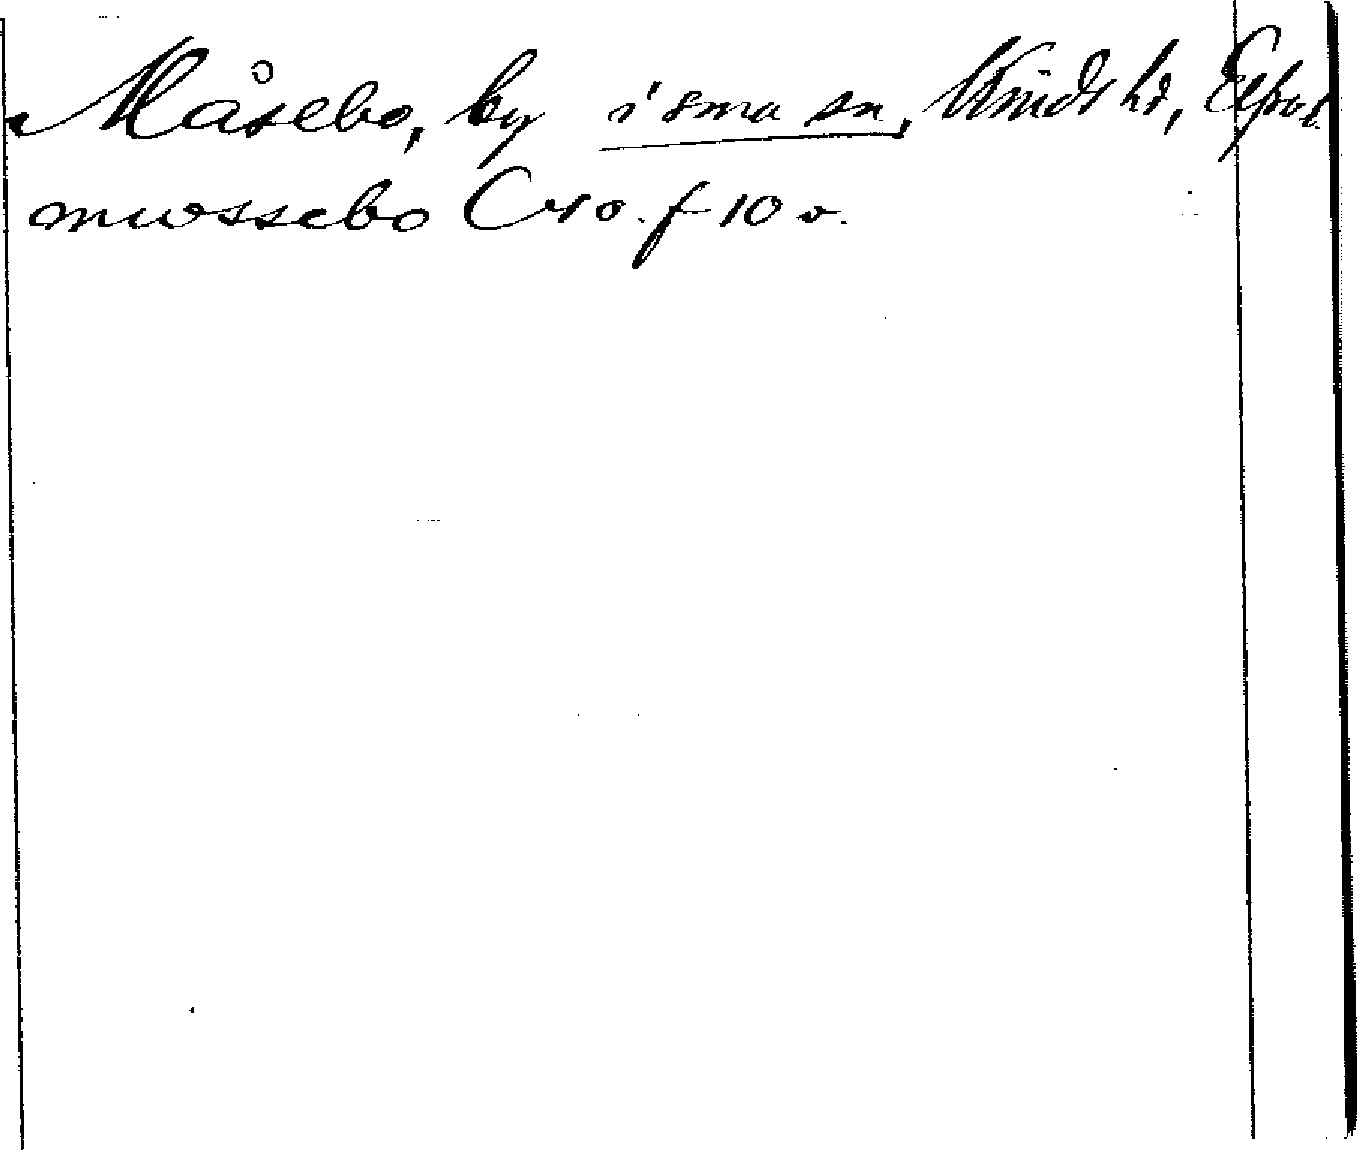 Måsebo, by i sma sn, Kinds hd, Elfsb.
mwossebo C 40. f 10 v.